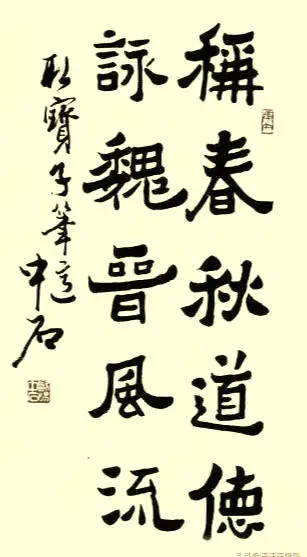 稱春秋道德
詠魏晉風流
取寶子筆意
中石